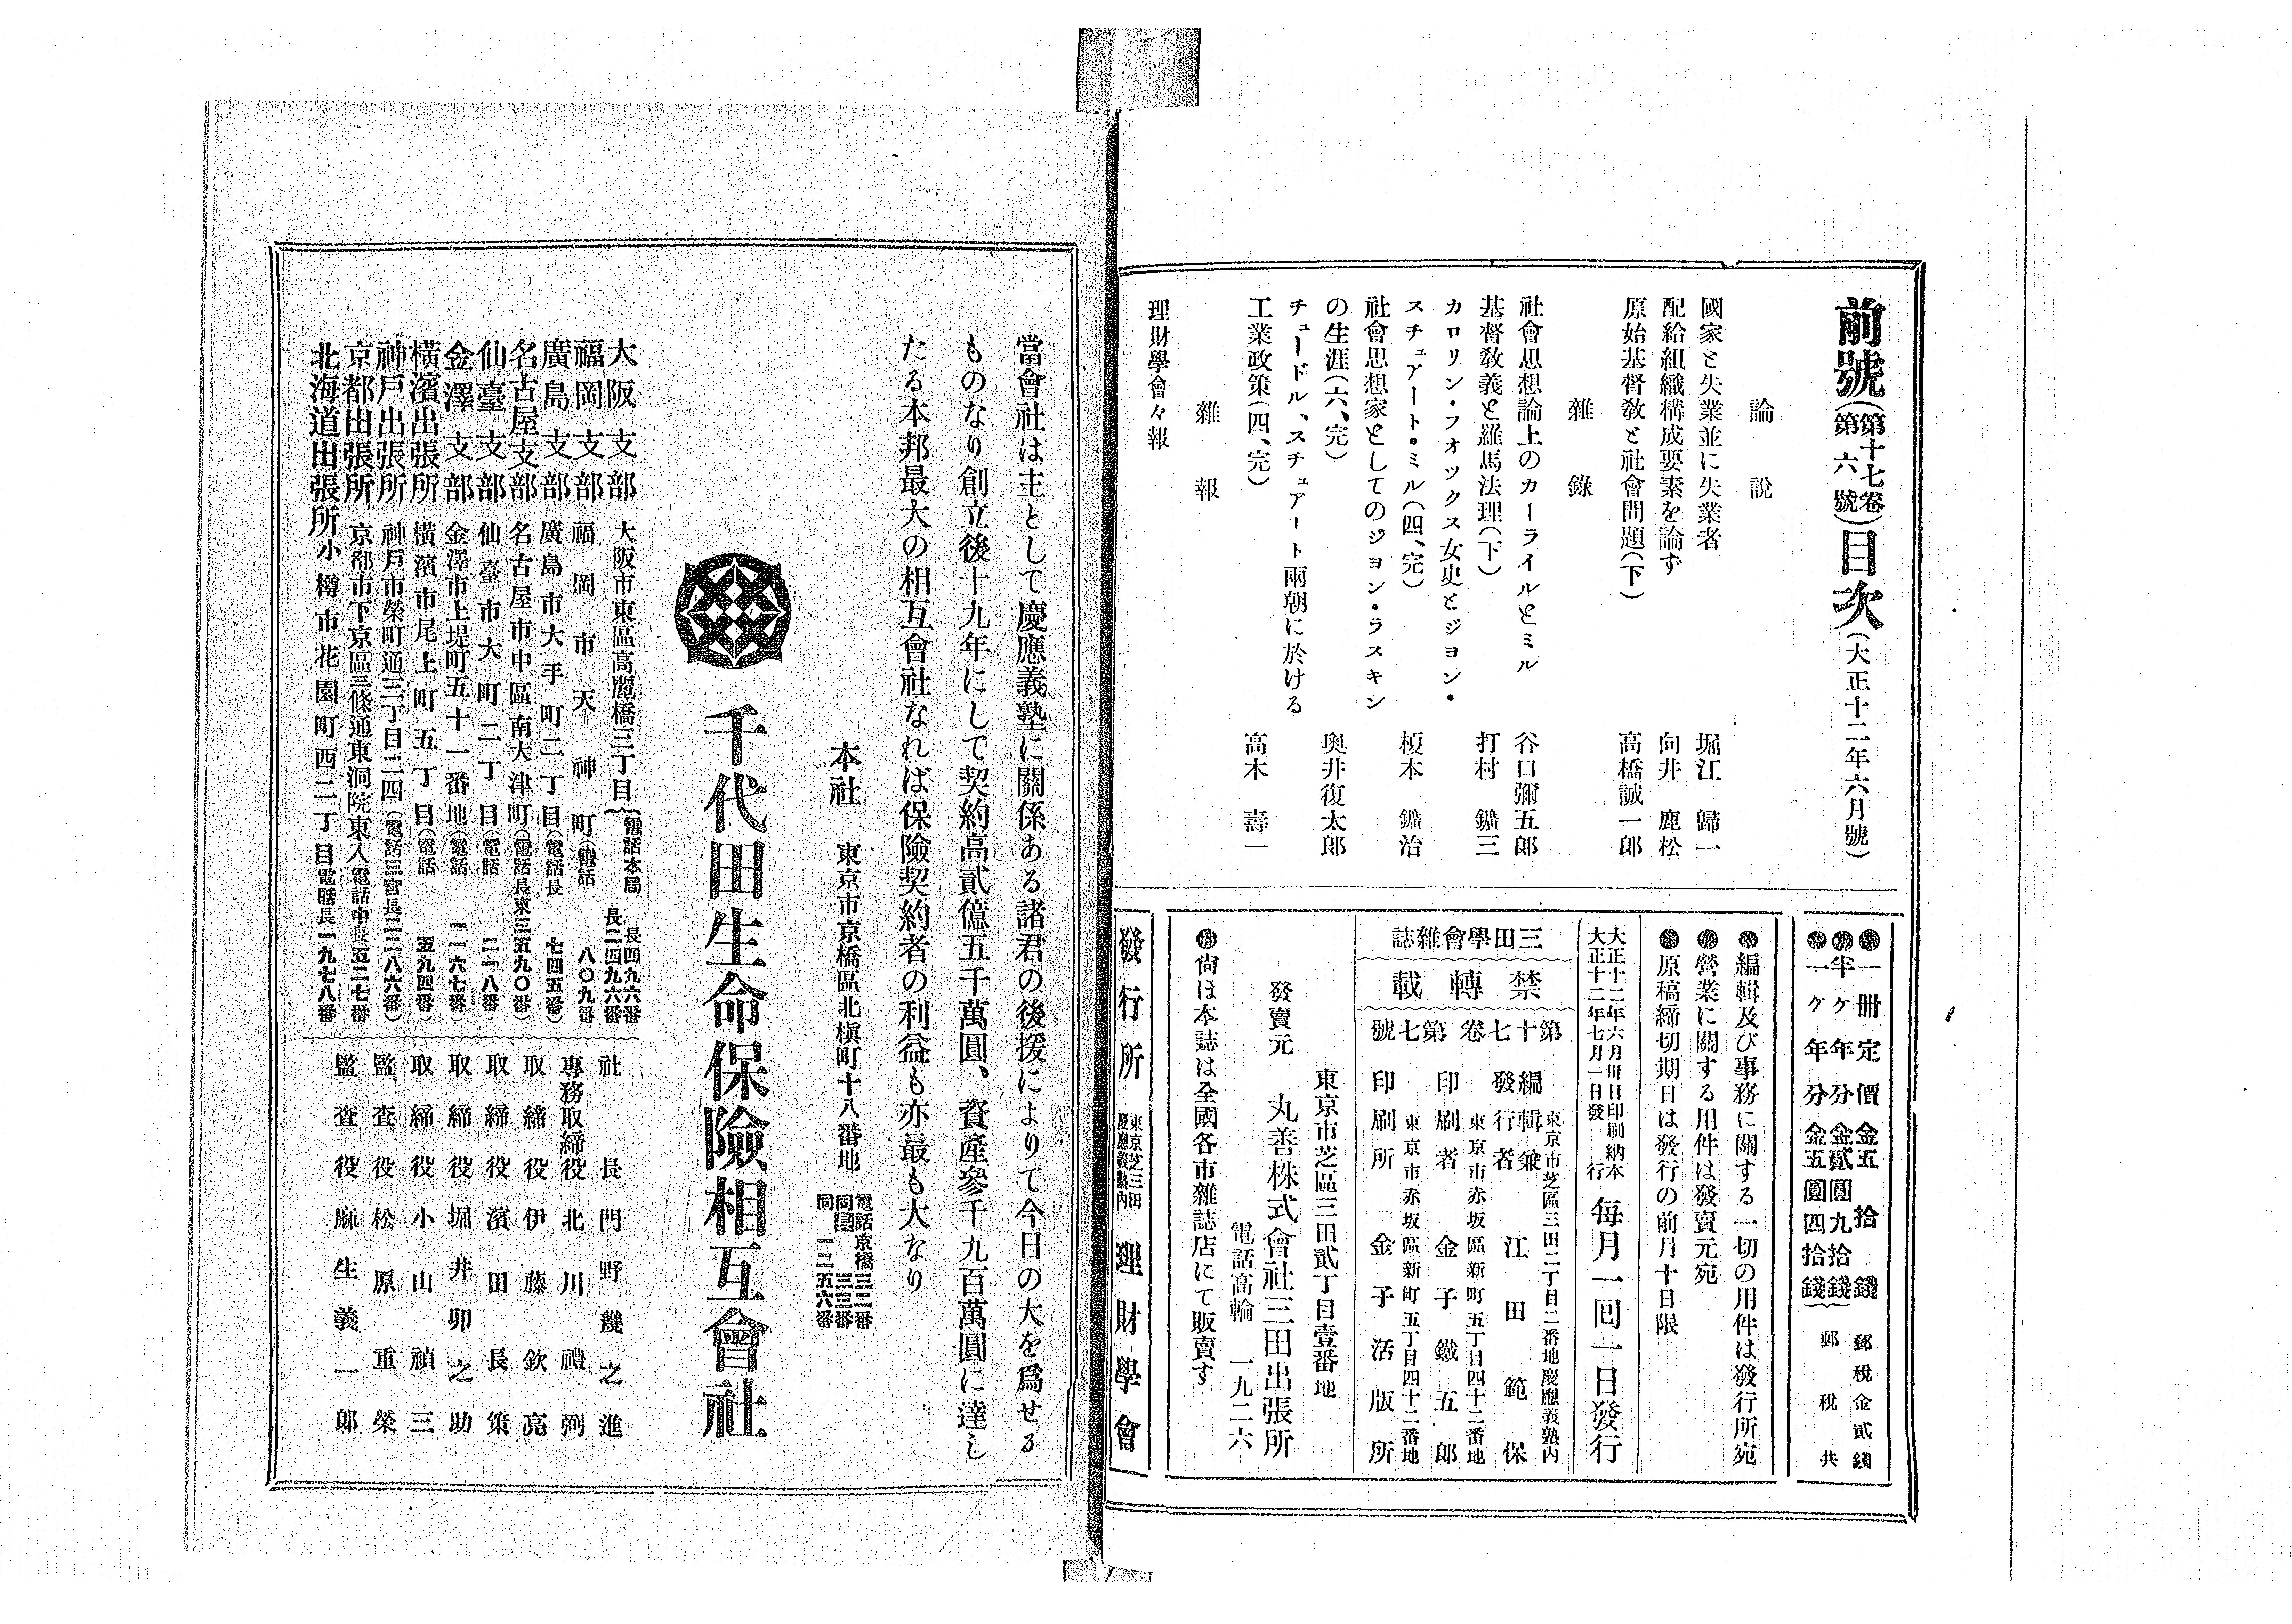 前號(第十七卷第六號)目次(大正十二年六月號)
論説
國家と失業並に失業者 堀江歸一
配給組織構成要素を論ず 向井鹿松
原始基督教と社會問題(下) 高橋誠一郎
雜錄
社會思想論上のカーライルとミル 谷口彌五郎
基督教義と羅馬法理(下) 打村鑛三
カロリン・フオツクス女史とジヨン・
スチュアート・ミル(四、完) 榎本鑛治
社會思想家としてのジヨン・ラスキン
の生涯(六、完) 奧井復太郎
チュードル、スチュアート兩朝に於ける
工業政策(四、完) 高木壽一
雜報
理財學會々報
●一册定價金五拾錢 郵税金貳錢
●半ケ年分金貳圓九拾錢
●一ケ年分金五圓四拾錢 郵税共
●編輯及び事務に關する一切の用件は發行所宛
●營業に關する用件は發賣元宛
●原稿締切期日は發行の前月十日限
大正十二年六月卅日印刷納本
大正十二年七月一日發行
毎月一回一日發行
三田學會雜誌
禁轉載
第十七卷第七號
東京市芝區三田二丁目二番地慶應義塾內
編輯兼發行者 江田範保
東京市赤坂區新町五丁目四十二番地
印刷者 金子鐵五郎
東京市赤坂區新町五丁目四十二番地
印刷所 金子活版所
東京市芝區三田貳丁目壹番地
發賣元 丸善株式會社三田出張所
電話高輪 一九二六
●尙ほ本誌は全國各市雜誌店にて販賣す
發行所 東京芝三田慶應義塾內 理財學會
當會社は主として慶應義塾に關係ある諸君の後援によりて今日の大を爲せる
ものなり創立後十九年にして契約高貳億五千萬圓、資產參千九百萬圓に達し
たる本邦最大の相互會社なれば保險契約者の利益も亦最も大なり
本社 東京市京橋區北槇町十八番地
電話京橋
同
同 一二五六番
千代田生命保險相互會社
大阪支部 大阪市東區高麗橋三丁目(電話本局 長四九六番 長二四九六番
福岡支部 福岡市天神町(電話 八〇九番
廣島支部 廣島市大手町二丁目(電話長 七四五番)
名古屋支部 名古屋市中區南大津町(電話長東三五九〇番)
仙臺支部 仙臺市大町二丁目(電話 二一八番)
金澤支部 金澤市上堤町五十一番地(電話 一一六七番)
橫濱出張所 橫濱市尾上町五丁目(電話 五九四番)
神戶出張所 神戶市榮町通三丁目二四(電話三宮長二二八六番)
京都出張所 京都市下京區三條通東洞院東入電話中長五二七番
北海道出張所 小樽市花園町西二丁目電話長一九七八番
社長 門野幾之進
專務取締役 北川禮弼
取締役 伊藤欽亮
取締役 濱田長策
取締役 堀井卯之助
取締役 小山禎三
監査役 松原重榮
監査役 麻生義一郎